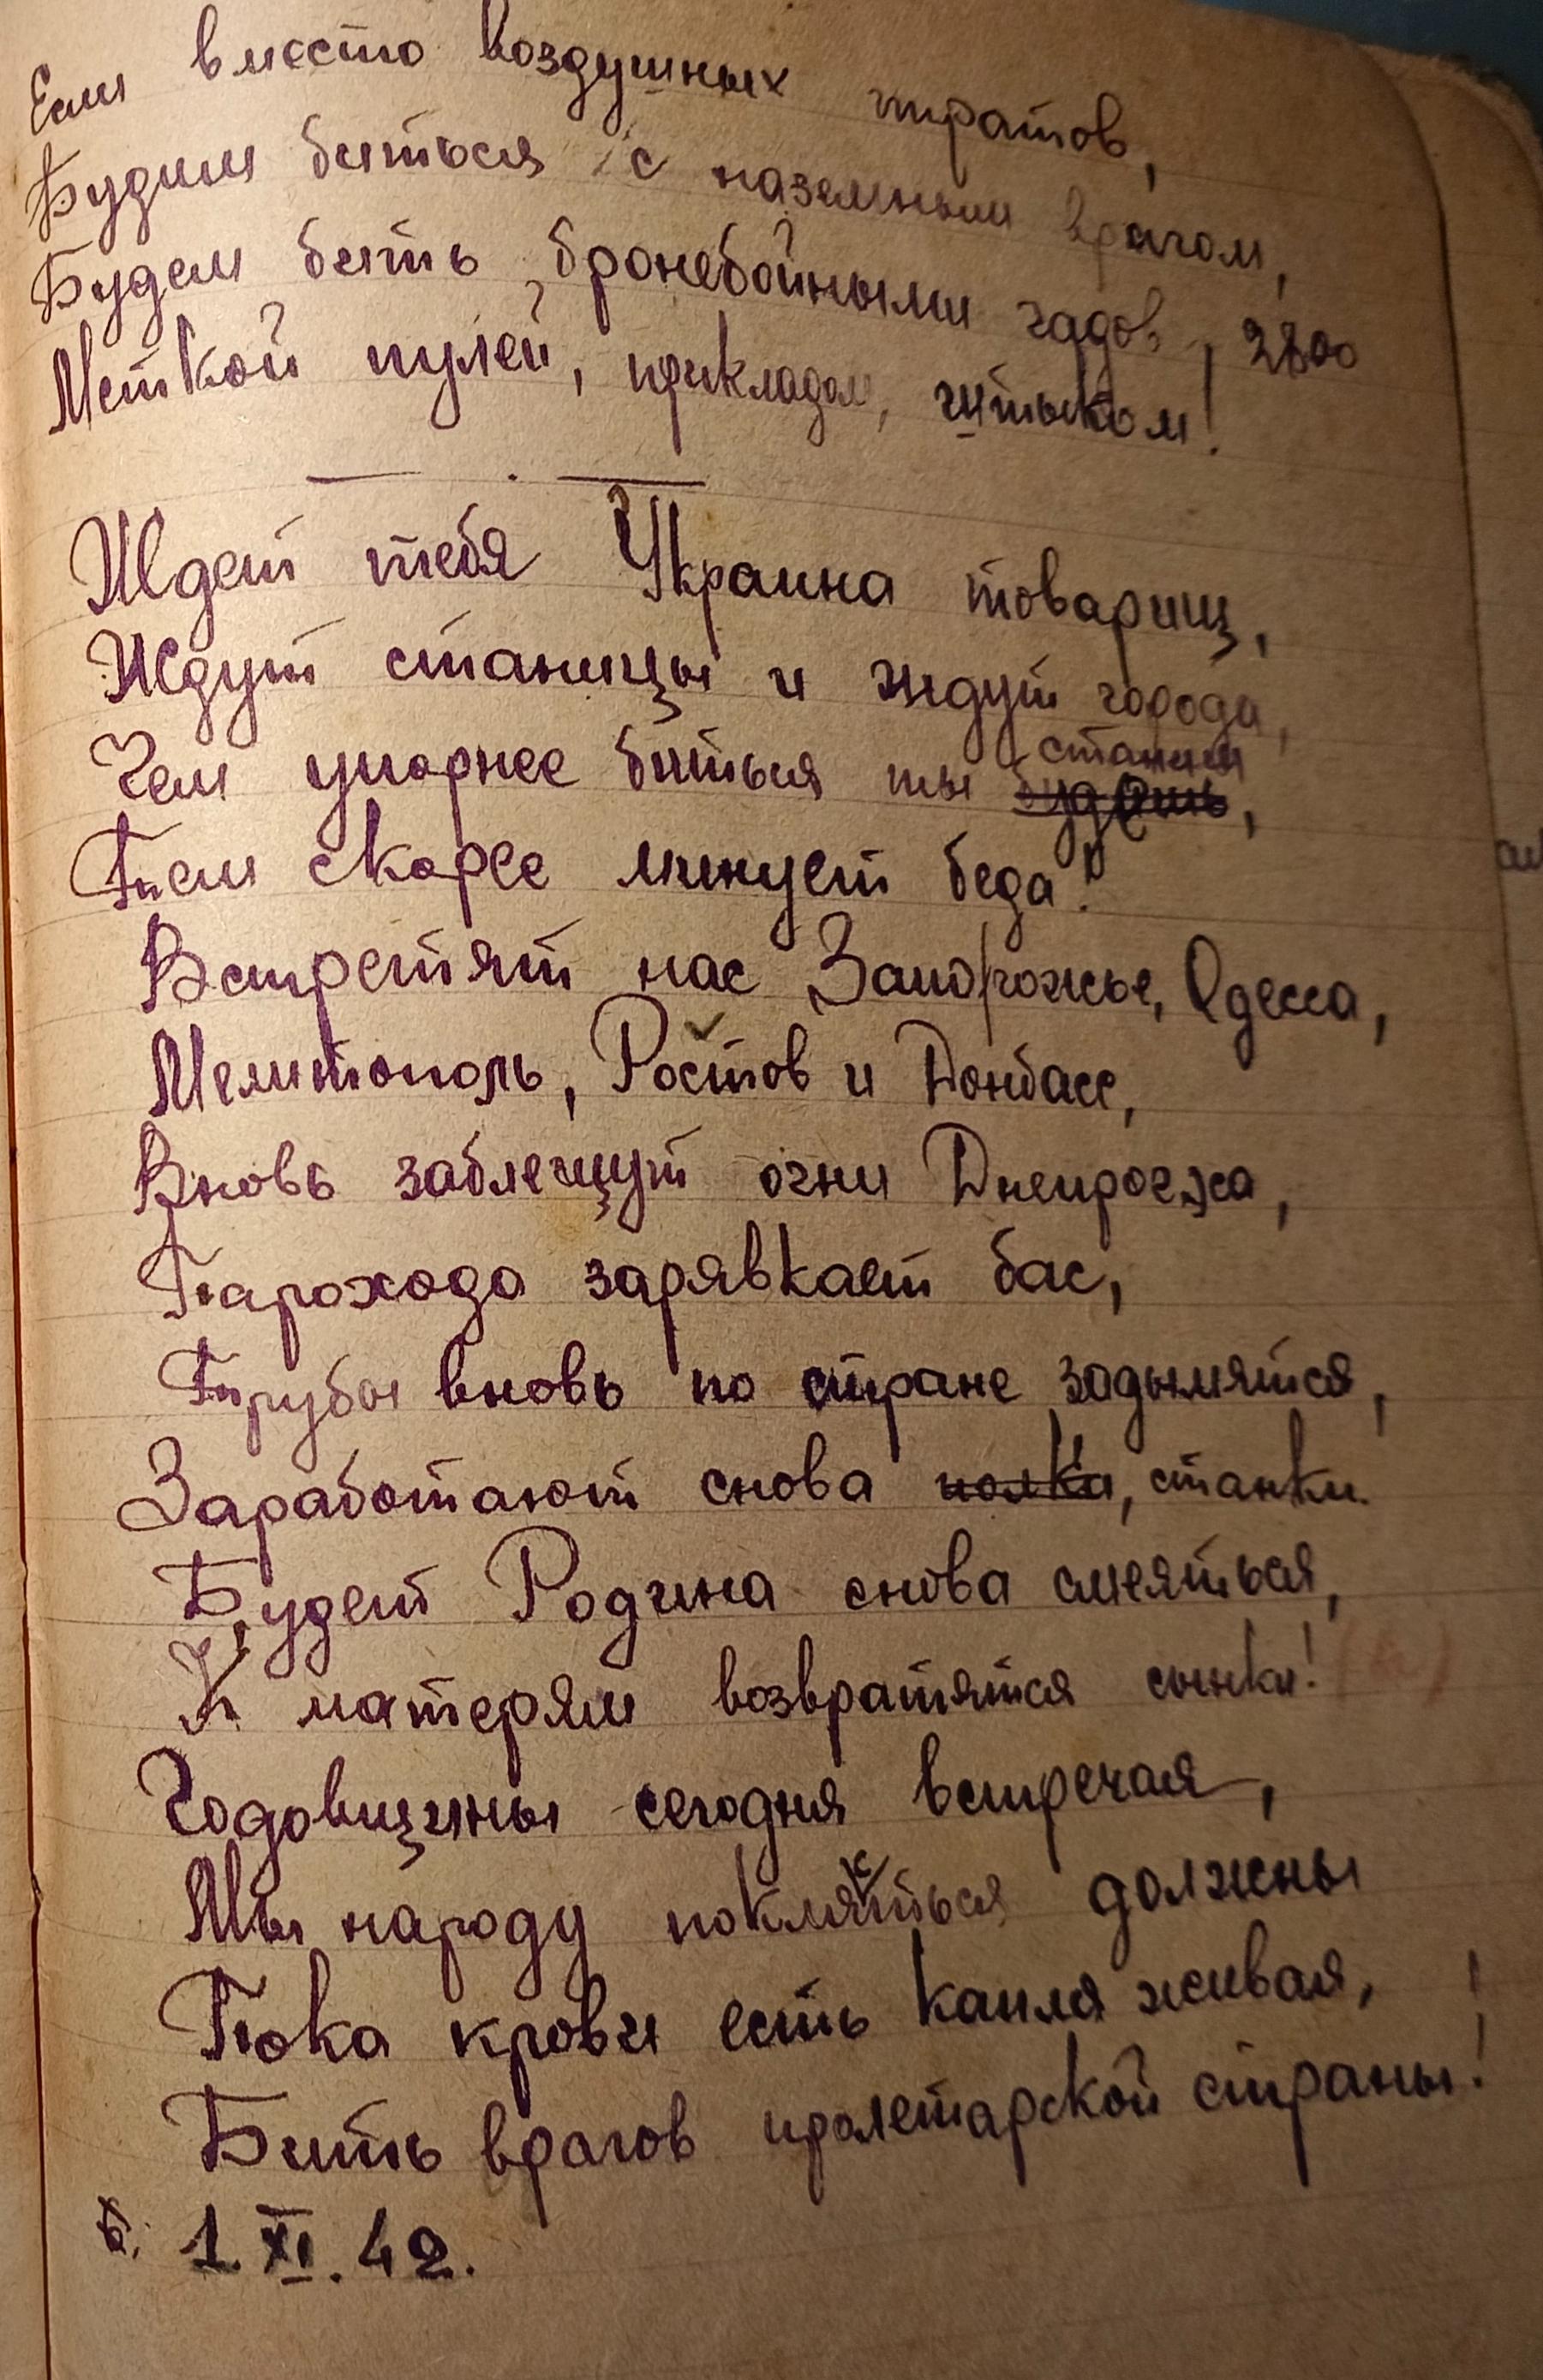 Если вместо воздушных пиратов,
Будим биться с наземным врагом,
Будем бить бронебойными гадов, 2800
Меткой пулей, прикладом, штыком!
Ждет тебя Украина товарищ,
Ждут станицы и ждут города,
станем
Чем упорнее биться ты будешь,
Тем скорее минует беда!
Встретят нас Запорожье, Одесса,
Мелитополь, Ростов и Донбасс,
Вновь заблещут огни Днепрогэса,
Парохода зарявкает бас,
Трубы вновь по стране задымятся,
Заработают снова полки, станки.
Будет Родина снова смеяться,
К матерям возвратятся сынки!
Годовщины сегодня встречая,
Мы народу поклясться должны
Пока крови есть капля живая,
Бить врагов пролетарской страны!
1. XI. 42.